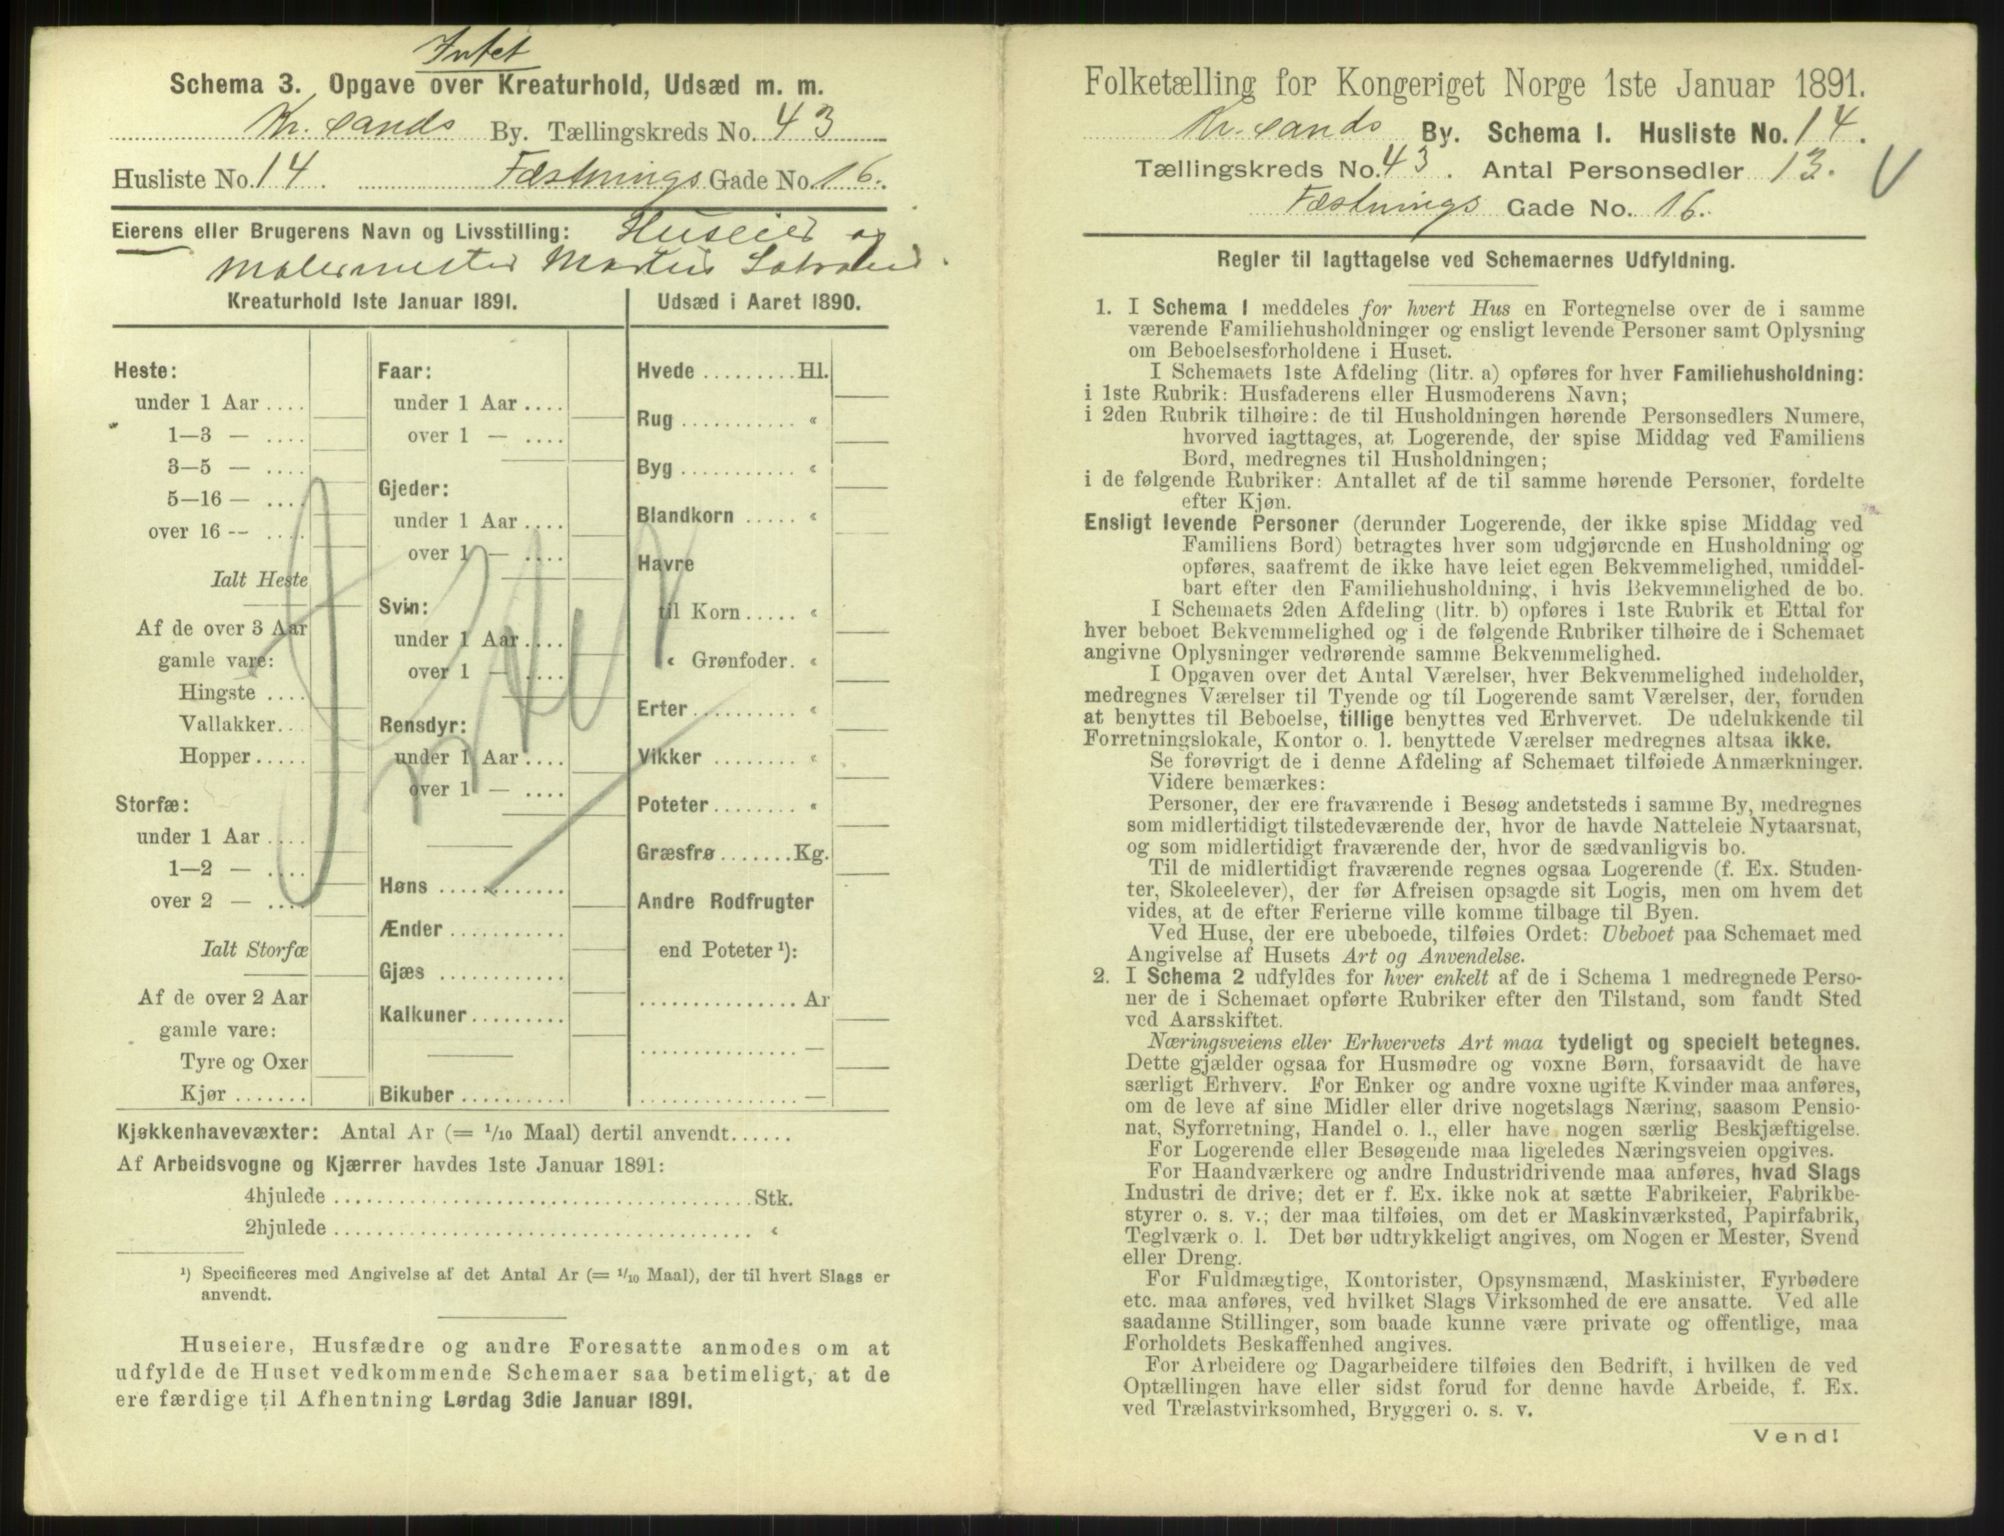 Intet
Schema 3. Opgave over Kreaturhold, Udsæd m. m.
Kr.sands By. Tællingskreds No. 43
Husliste No. 14. Fæstnings Gade No. 16.
Eierens eller Brugerens Navn og Livsstilling: Huseier og
Malermester
Kreaturhold 1ste Januar 1891.
Udsæd i Aaret 1890.
Heste:
under 1 Aar....
1—3 — ....
3—5 — ....
5—16 — ....
over 16 -- ....
Ialt Heste
Af de over 3 Aar
gamle vare:
Hingste ....
Vallakker...
Hopper.....
Storfæ:
under 1 Aar....
1—2 — ....
over 2 — ....
Ialt Storfæ
Af de over 2 Aar
gamle vare:
Tyre og Oxer
Kjør .......
Faar:
under 1 Aar....
over 1 — ....
Gjeder:
under 1 Aar....
over 1 — ....
Svin:
under 1 Aar....
over 1 — ....
Rensdyr:
under 1 Aar....
over 1 — ....
Høns ............
Ænder...........
Gjæs ............
Kalkuner.........
Bikuber ..........
Hvede .........Hl.
Rug ........... «
Byg ........... «
Blandkorn ..... «
Havre
til Korn..... «
« Grønfoder. «
Erter.......... «
Vikker ........ «
Poteter........ «
Græsfrø.......Kg.
Andre Rodfrugter
end Poteter ¹):
............... Ar
............... —
............... —
Kjøkkenhavevæxter: Antal Ar (= 1/10 Maal) dertil anvendt......
Af Arbeidsvogne og Kjærrer havdes 1ste Januar 1891:
4hjulede ........................................Stk.
2hjulede ........................................ «
¹) Specificeres med Angivelse af det Antal Ar (= 1/10 Maal), der til hvert Slags er
anvendt.
Huseiere, Husfædre og andre Foresatte anmodes om at
udfylde de Huset vedkommende Schemaer saa betimeligt, at de
ere færdige til Afhentning Lørdag 3die Januar 1891.
Folketælling for Kongeriget Norge 1ste Januar 1891.
Kr.sands By. Schema I. Husliste No. 14.
Tællingskreds No. 43. Antal Personsedler 13.
Fæstnings Gade No. 16.
Regler til Iagttagelse ved Schemaernes Udfyldning.
1. I Schema I meddeles for hvert Hus en Fortegnelse over de i samme
værende Familiehusholdninger og ensligt levende Personer samt Oplysning
om Beboelsesforholdene i Huset.
I Schemaets 1ste Afdeling (litr. a) opføres for hver Familiehusholdning:
i 1ste Rubrik: Husfaderens eller Husmoderens Navn;
i 2den Rubrik tilhøire: de til Husholdningen hørende Personsedlers Numere,
hvorved iagttages, at Logerende, der spise Middag ved Familiens
Bord, medregnes til Husholdningen;
i de følgende Rubriker: Antallet af de til samme hørende Personer, fordelte
efter Kjøn.
Ensligt levende Personer (derunder Logerende, der ikke spise Middag ved
Familiens Bord) betragtes hver som udgjørende en Husholdning og
opføres, saafremt de ikke have leiet egen Bekvemmelighed, umiddel-
bart efter den Familiehusholdning, i hvis Bekvemmelighed de bo.
I Schemaets 2den Afdeling (litr. b) opføres i 1ste Rubrik et Ettal for
hver beboet Bekvemmelighed og i de følgende Rubriker tilhøire de i Schemaet
angivne Oplysninger vedrørende samme Bekvemmelighed.
I Opgaven over det Antal Værelser, hver Bekvemmelighed indeholder,
medregnes Værelser til Tyende og til Logerende samt Værelser, der, foruden
at benyttes til Beboelse, tillige benyttes ved Erhvervet. De udelukkende til
Forretningslokale, Kontor o. l. benyttede Værelser medregnes altsaa ikke.
Se forøvrigt de i denne Afdeling af Schemaet tilføiede Anmærkninger.
Videre bemærkes:
Personer, der ere fraværende i Besøg andetsteds i samme By, medregnes
som midlertidigt tilstedeværende der, hvor de havde Natteleie Nytaarsnat,
og som midlertidigt fraværende der, hvor de sædvanligvis bo.
Til de midlertidigt fraværende regnes ogsaa Logerende (f. Ex. Studen-
ter, Skoleelever), der før Afreisen opsagde sit Logis, men om hvem det
vides, at de efter Ferierne ville komme tilbage til Byen.
Ved Huse, der ere ubeboede, tilføies Ordet: Ubeboet paa Schemaet med
Angivelse af Husets Art og Anvendelse.
2. I Schema 2 udfyldes for hver enkelt af de i Schema 1 medregnede Perso-
ner de i Schemaet opførte Rubriker efter den Tilstand, som fandt Sted
ved Aarsskiftet.
Næringsveiens eller Erhvervets Art maa tydeligt og specielt betegnes.
Dette gjælder ogsaa for Husmødre og voxne Børn, forsaavidt de have
særligt Erhverv. For Enker og andre voxne ugifte Kvinder maa anføres,
om de leve af sine Midler eller drive nogetslags Næring, saasom Pensio-
nat, Syforretning, Handel o. l., eller have nogen særlig Beskjæftigelse.
For Logerende eller Besøgende maa ligeledes Næringsveien opgives.
For Haandværkere og andre Industridrivende maa anføres, hvad Slags
Industri de drive; det er f. Ex. ikke nok at sætte Fabrikeier, Fabrikbe-
styrer o. s. v.; der maa tilføies, om det er Maskinværksted, Papirfabrik,
Teglværk o. l. Det bør udtrykkeligt angives, om Nogen er Mester, Svend
eller Dreng.
For Fuldmægtige, Kontorister, Opsynsmænd, Maskinister, Fyrbødere
etc. maa anføres, ved hvilket Slags Virksomhed de ere ansatte. Ved alle
saadanne Stillinger, som baade kunne være private og offentlige, maa
Forholdets Beskaffenhed angives.
For Arbeidere og Dagarbeidere tilføies den Bedrift, i hvilken de ved
Optællingen have eller sidst forud for denne havde Arbeide, f. Ex.
ved Trælastvirksomhed, Bryggeri o. s. v.
Vend!